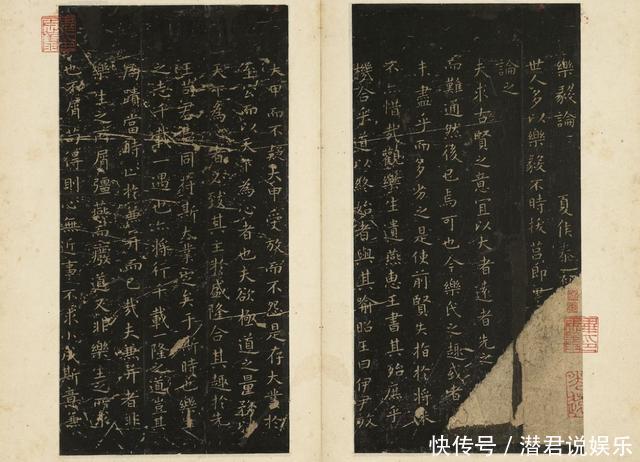 樂毅論 夏侯泰
世人多以樂毅不時拔莒即
論之
夫求古賢之意宜以大者遠者先之
而難通然後已焉可也今樂氏之趣或者
未盡乎而多劣之是使前賢失指於將來
不亦惜哉觀樂生遺燕惠王書其殆庶乎
機合乎道以終始者與其喻昭王曰伊尹放
大甲而不疑大甲受放而不怨是存大業於
至公而以天下為心者也夫欲極道之量務
天下為者必致其主於盛隆合其趣於先
王苟君臣同符斯大業定矣于斯時也樂
之志千載一遇也亦將行千載隆之道豈其
局蹟當時止於兼并而已哉夫兼并者非
樂生之所屑彊燕而廢道又非樂生之所求
也不屑苟得則心無近事不求小成斯意兼
快传号／潜君说娱乐